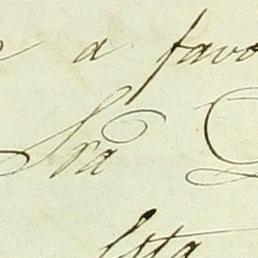 a favo
Sra
Esta